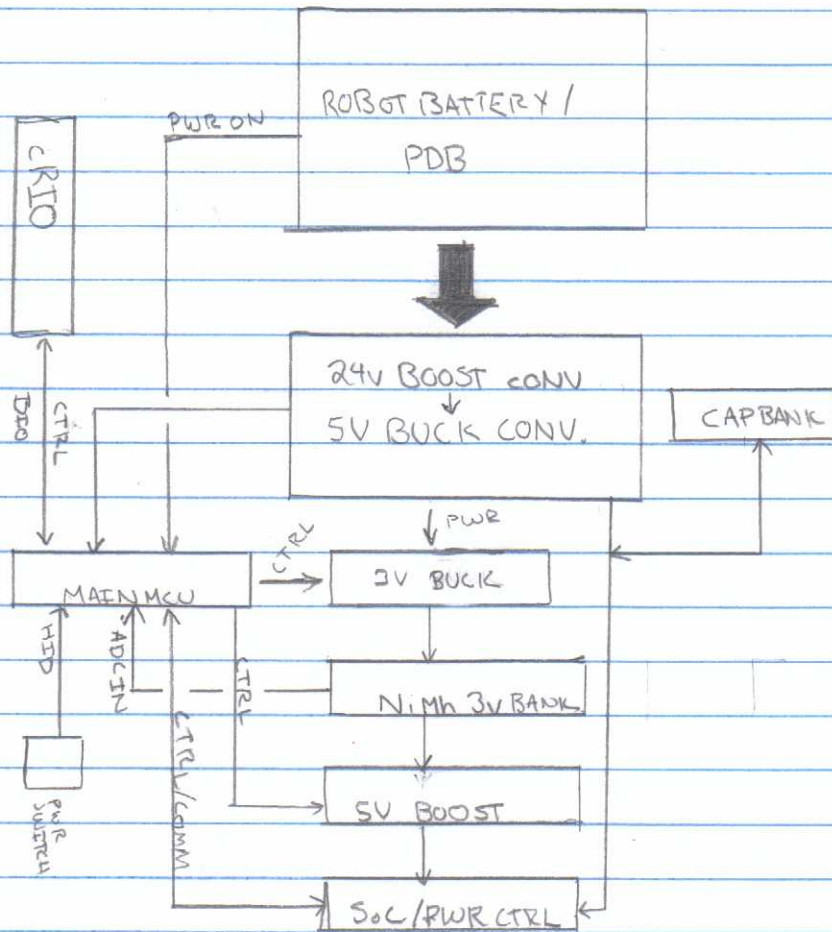 ROBOT BATTERY /
PDB
PWR ON
cRIO
24V BOOST CONV
5V BUCK CONV.
CAPBANK
CTRL
DIO
PWR
CTRL
MAIN MCU
3V BUCK
HID
ADC IN
CTRL
NiMh 3V BANK
CTRL/COMM
5V BOOST
PWR
SWITCH
SoC/PWR CTRL